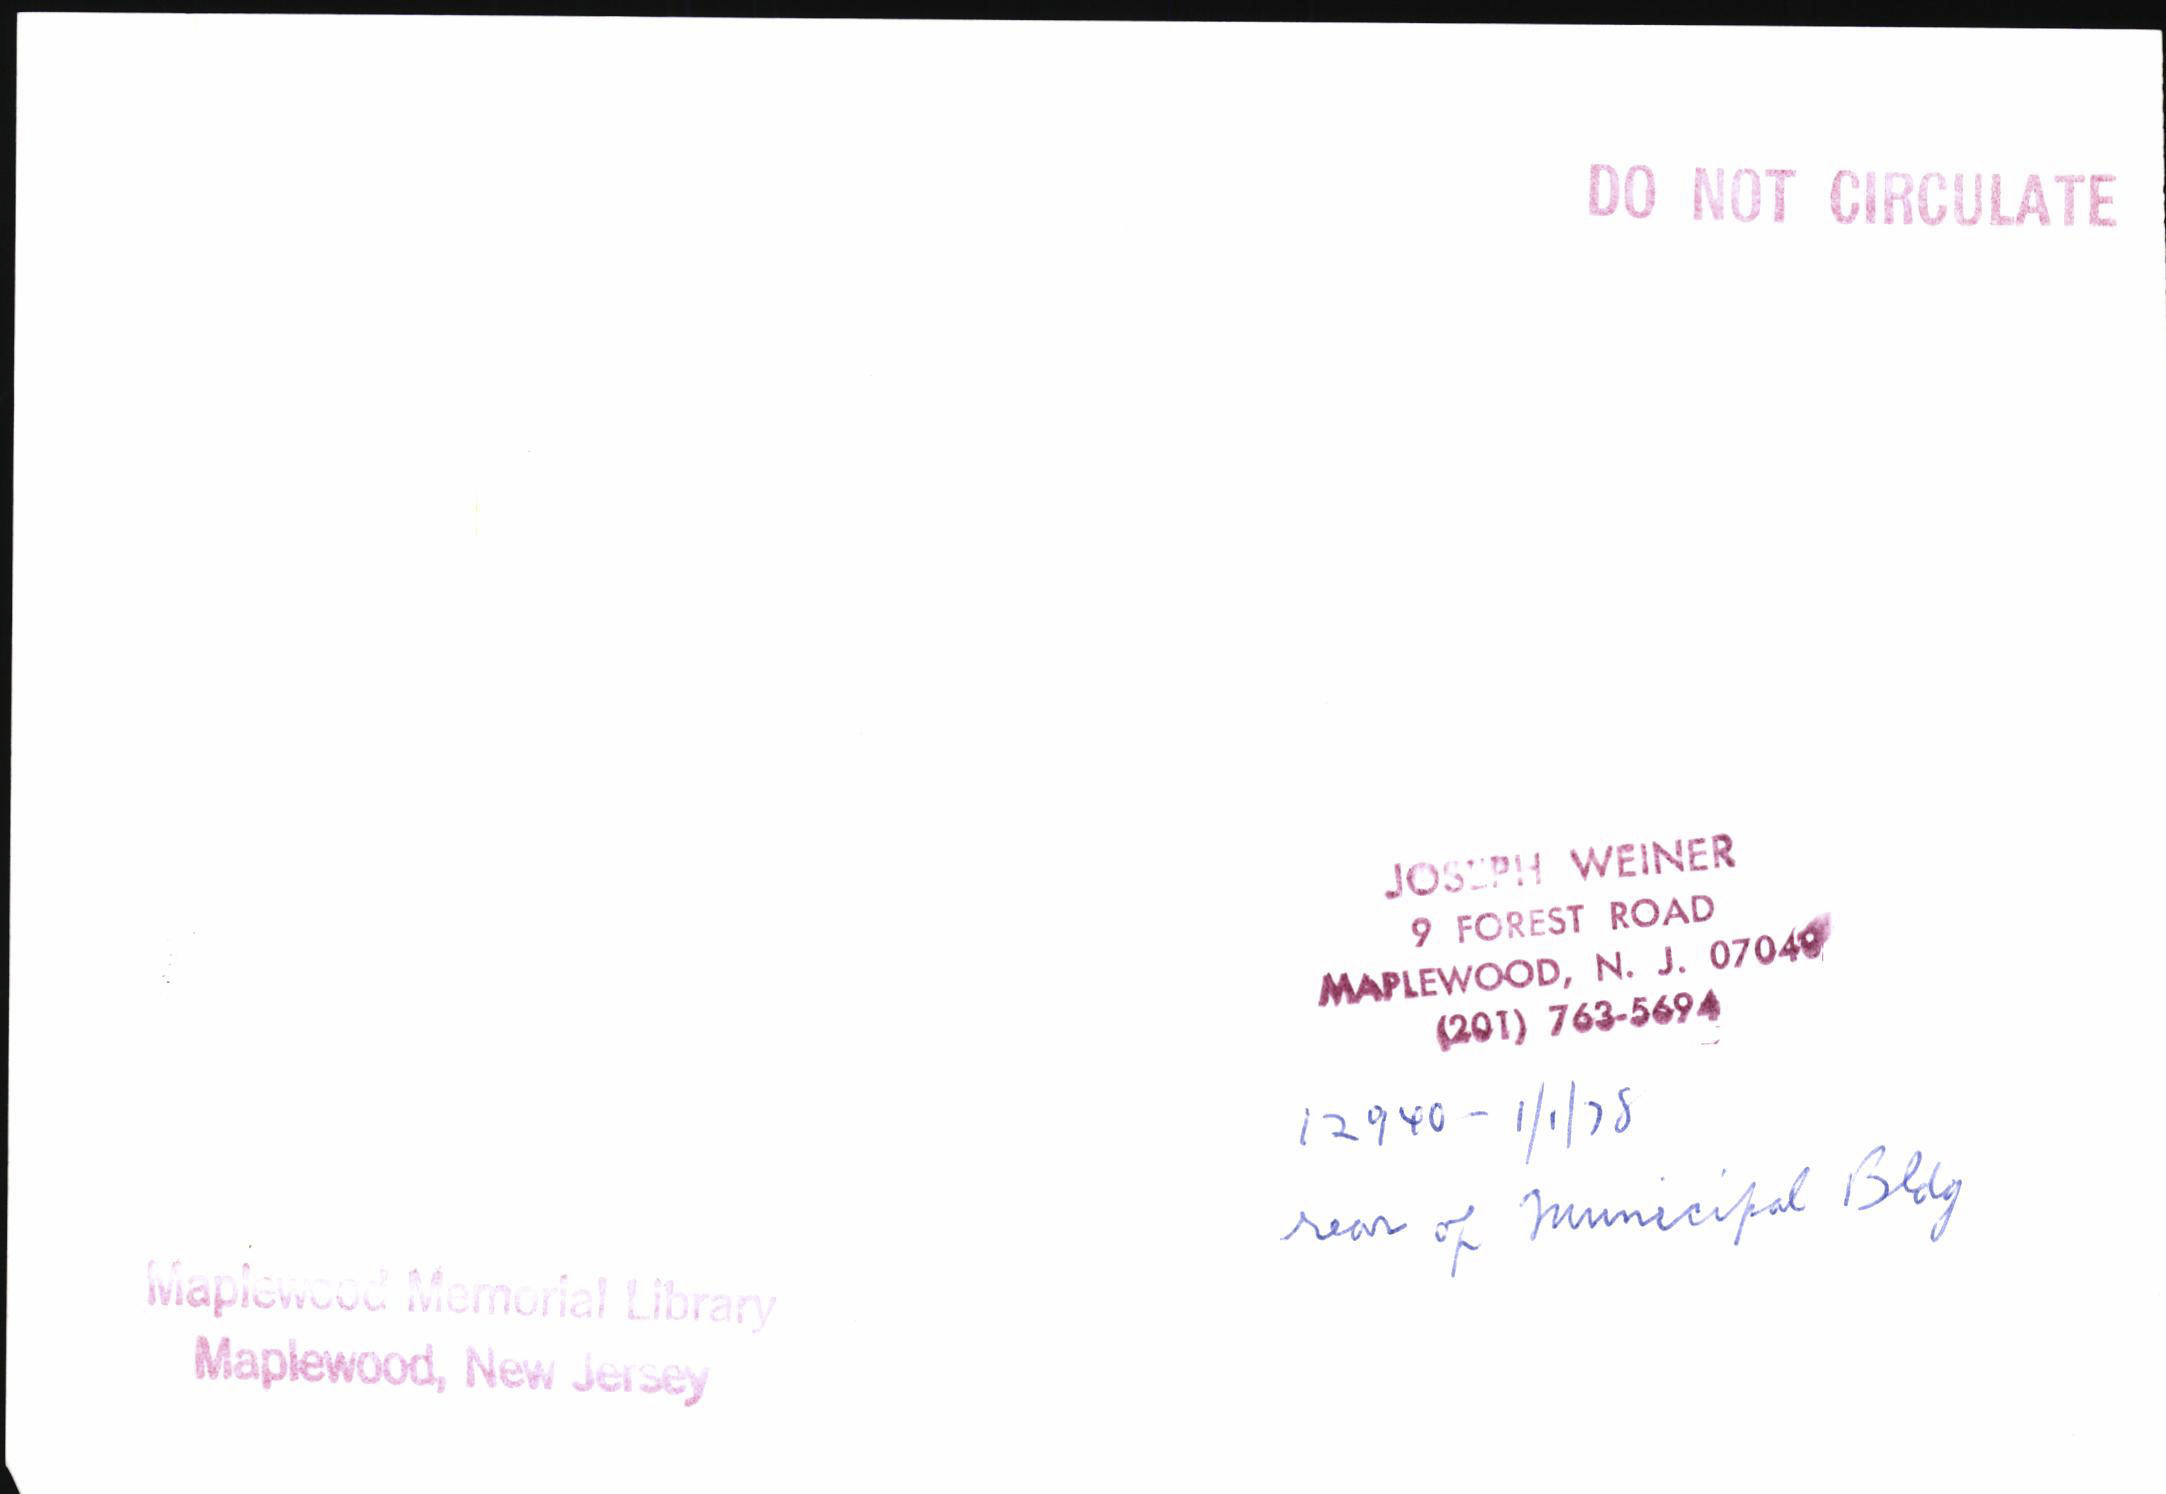 DO NOT CIRCULATE
JOSEPH WEINER
9 FOREST ROAD
MAPLEWOOD, N. J. 07040
(201) 763-5694
12940 - 1/1/78
rear of Municipal Bldg
Maplewood Memorial Library
Maplewood, New Jersey